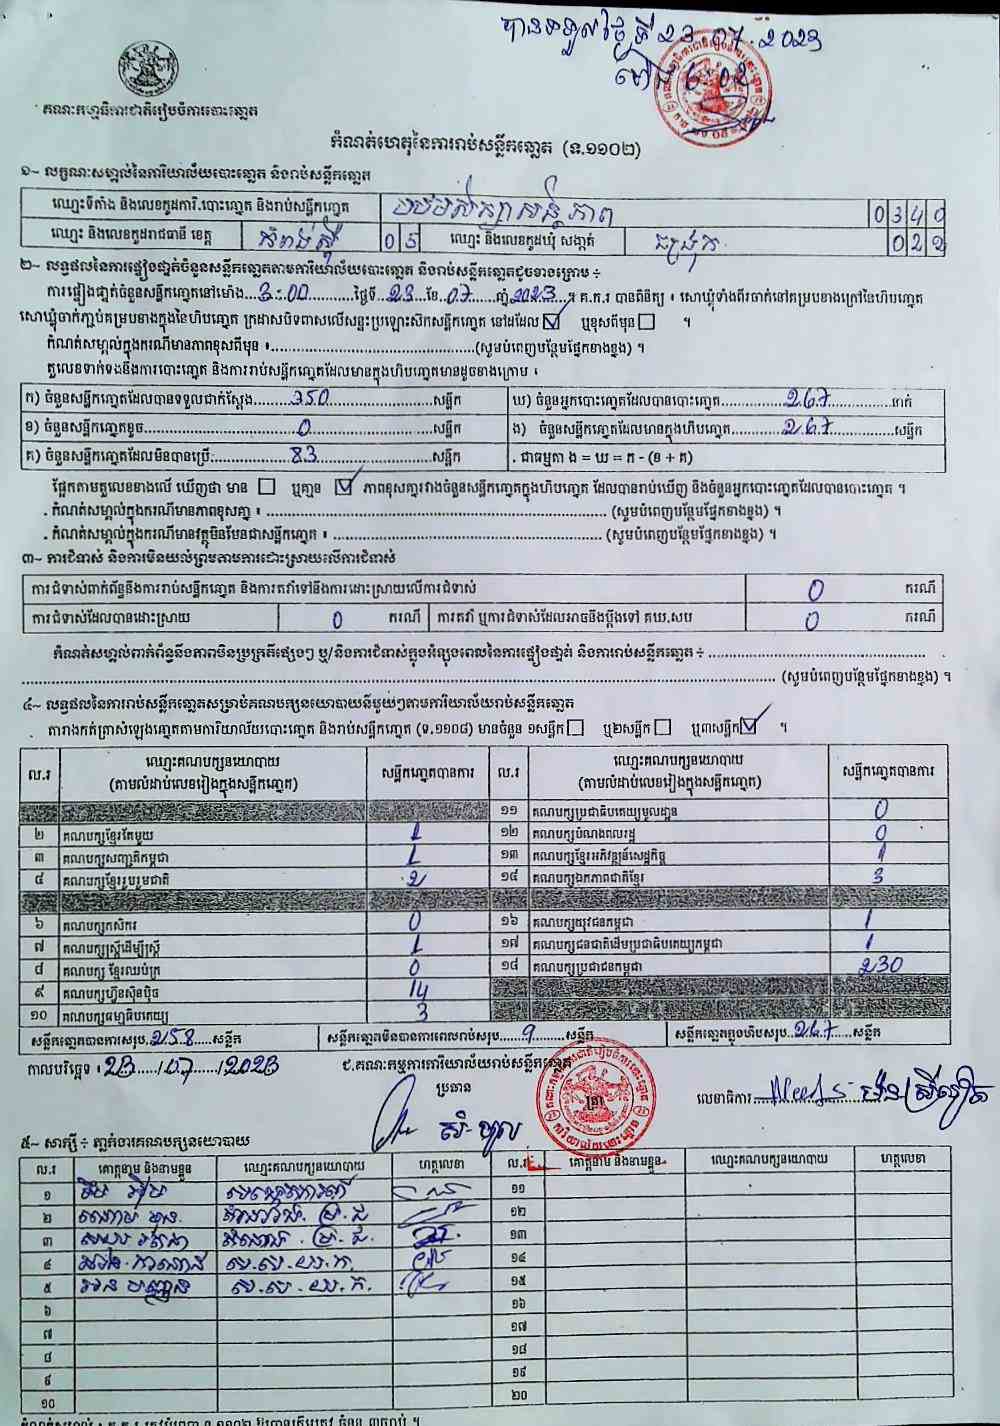 បានទទួលថ្ងៃទី 23.07.2023
ម៉ោង 6:02
គណៈកម្មាធិការជាតិរៀបចំការបោះឆ្នោត
កំណត់ហេតុនៃការរាប់សន្លឹកឆ្នោត (ទ.១១០២)
១~ លក្ខណៈសម្គាល់នៃការិយាល័យបោះឆ្នោត និងរាប់សន្លឹកឆ្នោត
ឈ្មោះទីតាំង និងលេខកូដការិ.បោះឆ្នោត និងរាប់សន្លឹកឆ្នោត បឋមសិក្សាសន្តិភាព 0340
ឈ្មោះ និងលេខកូដរាជធានី ខេត្ត កំពង់ស្ពឺ 05 ឈ្មោះ និងលេខកូដឃុំ សង្កាត់
២~ លទ្ធផលនៃការផ្ទៀងផ្ទាត់ចំនួនសន្លឹកឆ្នោតតាមការិយាល័យបោះឆ្នោត និងរាប់សន្លឹកឆ្នោតដូចខាងក្រោម ÷
ការផ្ទៀងផ្ទាត់ចំនួនសន្លឹកឆ្នោតនៅម៉ោង 3:00 ថ្ងៃទី 23 ខែ 07 ឆ្នាំ 2023 ។ គ.ក.រ បានពិនិត្យ ៖ សោឃ្លុំទាំងពីរចាក់នៅគម្របខាងក្រៅនៃហិបឆ្នោត
សោឃ្លុំចាក់ភ្ជាប់គម្របខាងក្នុងនៃហិបឆ្នោត ក្រដាសបិទពាសលើសន្ទះប្រឡោះស៊កសន្លឹកឆ្នោត នៅដដែល ☑ ឬខុសពីមុន ☐ ។
កំណត់សម្គាល់ក្នុងករណីមានភាពខុសពីមុន ៖ (សូមបំពេញបន្ថែមផ្នែកខាងខ្នង) ។
តួលេខទាក់ទងនឹងការបោះឆ្នោត និងការរាប់សន្លឹកឆ្នោតដែលមានក្នុងហិបឆ្នោតមានដូចខាងក្រោម ៖
ក) ចំនួនសន្លឹកឆ្នោតដែលបានទទួលជាក់ស្តែង 350 សន្លឹក ឃ) ចំនួនអ្នកបោះឆ្នោតដែលបានបោះឆ្នោត 267 នាក់
ខ) ចំនួនសន្លឹកឆ្នោតខូច 0 សន្លឹក ង) ចំនួនសន្លឹកឆ្នោតដែលមានក្នុងហិបឆ្នោត 267 សន្លឹក
គ) ចំនួនសន្លឹកឆ្នោតដែលមិនបានប្រើ 83 សន្លឹក . ជាធម្មតា ង = ឃ = ក - (ខ + គ)
ផ្អែកតាមតួលេខខាងលើ ឃើញថា មាន ☐ ឬគ្មាន ☑ ភាពខុសគ្នារវាងចំនួនសន្លឹកឆ្នោតក្នុងហិបឆ្នោត ដែលបានរាប់ឃើញ និងចំនួនអ្នកបោះឆ្នោតដែលបានបោះឆ្នោត ។
. កំណត់សម្គាល់ក្នុងករណីមានភាពខុសគ្នា ៖ (សូមបំពេញបន្ថែមផ្នែកខាងខ្នង) ។
. កំណត់សម្គាល់ក្នុងករណីមានវត្ថុមិនមែនជាសន្លឹកឆ្នោត ៖ (សូមបំពេញបន្ថែមផ្នែកខាងខ្នង) ។
៣~ ការជំទាស់ និងការមិនយល់ព្រមតាមការដោះស្រាយលើការជំទាស់
ការជំទាស់ពាក់ព័ន្ធនឹងការរាប់សន្លឹកឆ្នោត និងការតវ៉ាទៅនឹងការដោះស្រាយលើការជំទាស់ 0 ករណី
ការជំទាស់ដែលបានដោះស្រាយ 0 ករណី ការតវ៉ា ឬការជំទាស់ដែលអាចនឹងប្តឹងទៅ គឃ.សប 0 ករណី
កំណត់សម្គាល់ពាក់ព័ន្ធនឹងភាពមិនប្រក្រតីផ្សេងៗ ឬ/និងការជំទាស់ក្នុងអំឡុងពេលនៃការផ្ទៀងផ្ទាត់ និងការរាប់សន្លឹកឆ្នោត ÷
(សូមបំពេញបន្ថែមផ្នែកខាងខ្នង) ។
៤~ លទ្ធផលនៃការរាប់សន្លឹកឆ្នោតសម្រាប់គណបក្សនយោបាយនីមួយៗតាមការិយាល័យរាប់សន្លឹកឆ្នោត
តារាងកត់ត្រាសំឡេងឆ្នោតតាមការិយាល័យបោះឆ្នោត និងរាប់សន្លឹកឆ្នោត (ទ.១១០៨) មានចំនួន ១សន្លឹក ☐ ឬ២សន្លឹក ☐ ឬ៣សន្លឹក ☑ ។
ល.រ ឈ្មោះគណបក្សនយោបាយ (តាមលំដាប់លេខរៀងក្នុងសន្លឹកឆ្នោត) សន្លឹកឆ្នោតបានការ ល.រ ឈ្មោះគណបក្សនយោបាយ (តាមលំដាប់លេខរៀងក្នុងសន្លឹកឆ្នោត) សន្លឹកឆ្នោតបានការ
១១ គណបក្សប្រជាធិបតេយ្យមូលដ្ឋាន 0
២ គណបក្សខ្មែរតែមួយ 1 ១២ គណបក្សបំណងពលរដ្ឋ 0
៣ គណបក្សសញ្ជាតិកម្ពុជា 1 ១៣ គណបក្សខ្មែរអភិវឌ្ឍន៍សេដ្ឋកិច្ច 1
៤ គណបក្សខ្មែររួបរួមជាតិ 2 ១៤ គណបក្សឯកភាពជាតិខ្មែរ 3
៦ គណបក្សកសិករ 0 ១៦ គណបក្សយុវជនកម្ពុជា 1
៧ គណបក្សស្ត្រីដើម្បីស្ត្រី 1 ១៧ គណបក្សជនជាតិដើមប្រជាធិបតេយ្យកម្ពុជា 1
៨ គណបក្ស ខ្មែរឈប់ក្រ 0 ១៨ គណបក្សប្រជាជនកម្ពុជា 230
៩ គណបក្សហ្វ៊ុនស៊ិនប៉ិច 14
១០ គណបក្សធម្មាធិបតេយ្យ 3
សន្លឹកឆ្នោតបានការសរុប 258 សន្លឹក សន្លឹកឆ្នោតមិនបានការពេលរាប់សរុប 9 សន្លឹក សន្លឹកឆ្នោតក្នុងហិបសរុប 267 សន្លឹក
កាលបរិច្ឆេទ ៖ 23/07/2023 ជ.គណៈកម្មការការិយាល័យរាប់សន្លឹកឆ្នោត
ប្រធាន
លេខាធិការ
៥~ សាក្សី ÷ ភ្នាក់ងារគណបក្សនយោបាយ
ល.រ គោត្តនាម និងនាមខ្លួន ឈ្មោះគណបក្សនយោបាយ ហត្ថលេខា ល.រ គោត្តនាម និងនាមខ្លួន ឈ្មោះគណបក្សនយោបាយ ហត្ថលេខា
១ ១១
២ ១២
៣ ១៣
៤ ស.ស.យ.ក. ១៤
៥ ស.ស.យ.ក. ១៥
៦ ១៦
៧ ១៧
៨ ១៨
៩ ១៩
១០ ២០